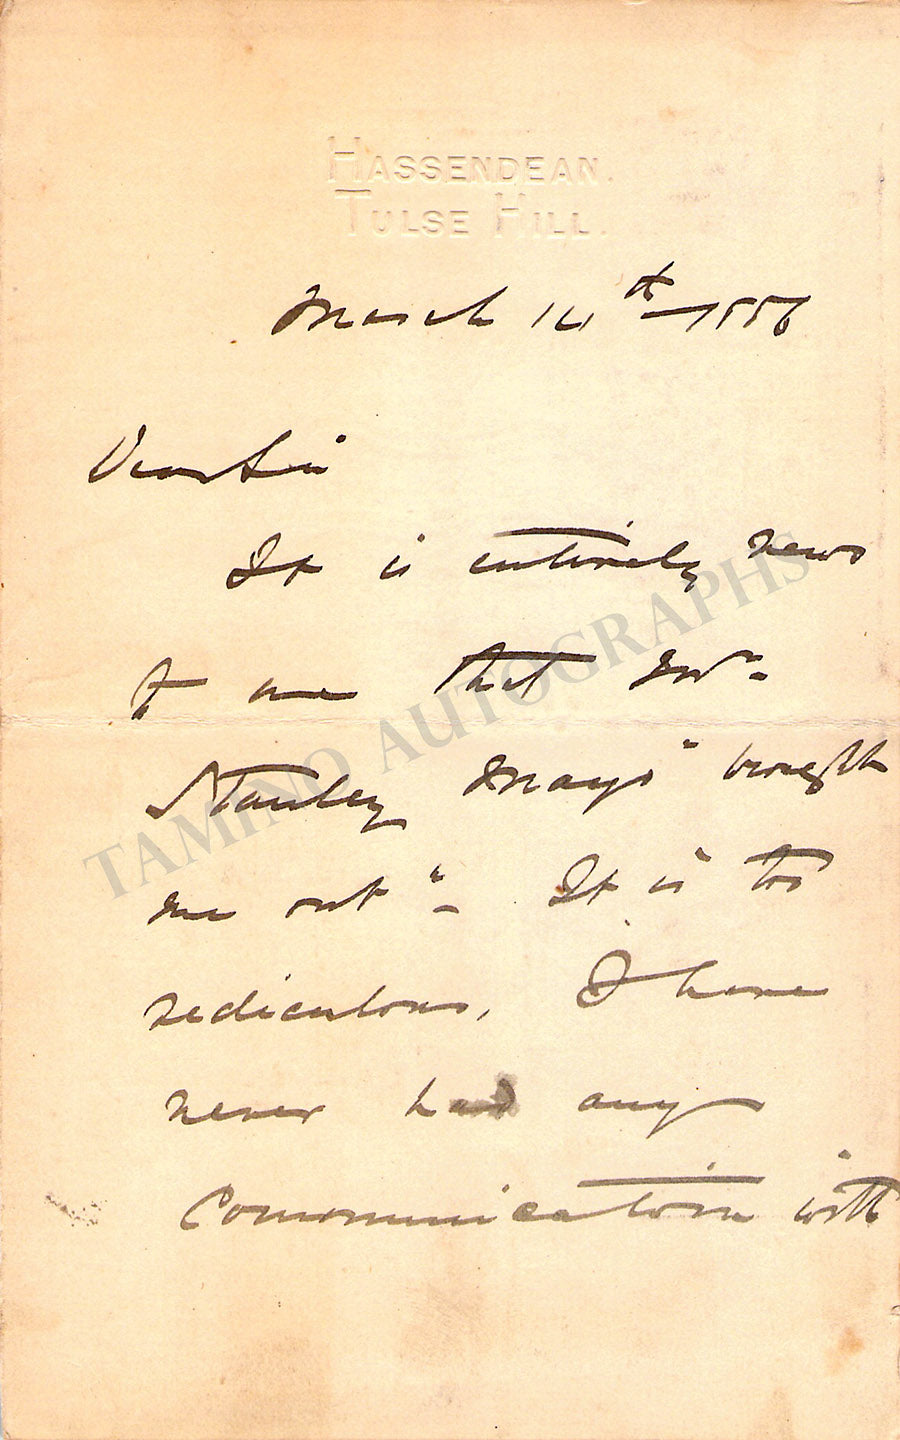 HASSENDEAN.
TULSE HILL.
March 14th 1886
Dear Sir
It is entirely news
to me that Mr.
Stanley Mayo "bought
me out". It is too
rediculous, I have
never had any
Communication with
TAMINO AUTOGRAPHS